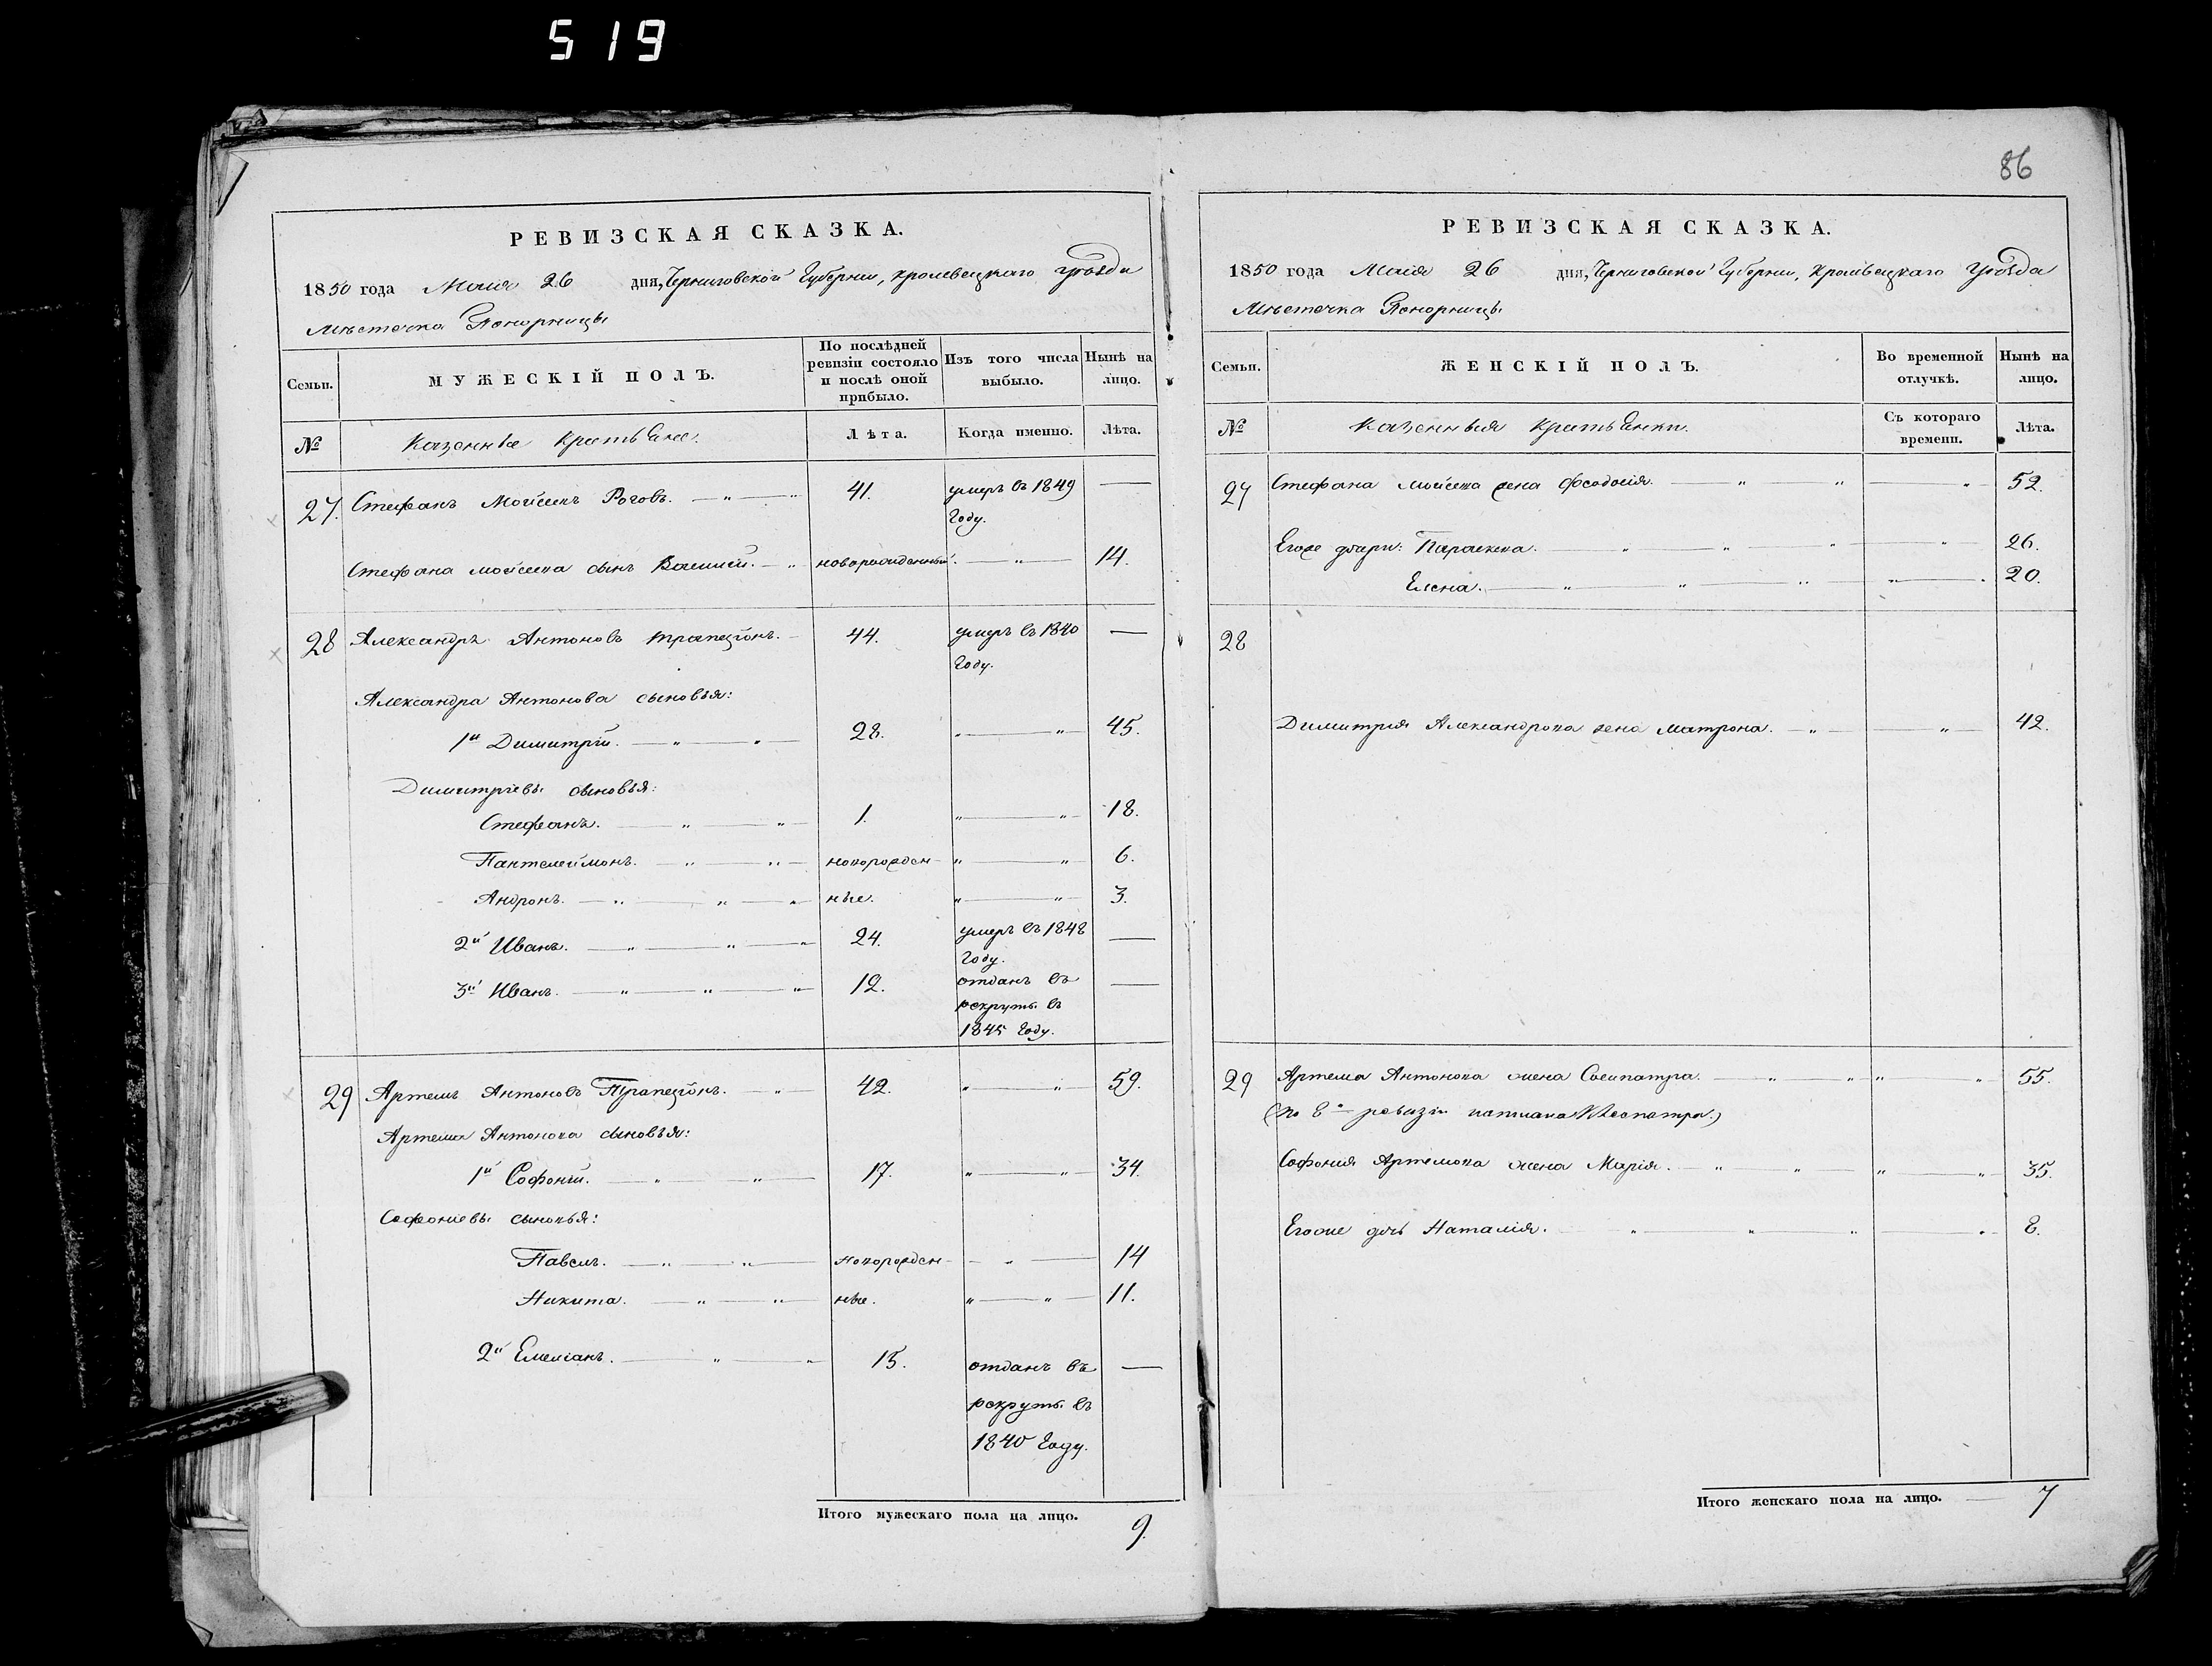 519
86
РЕВИЗСКАЯ СКАЗКА.
1850 года Маія 26 дня, Черниговской Губерніи, Кролевецкаго уѣзда
Мѣстечка Понорницы
Семьи. МУЖЕСКІЙ ПОЛЪ. По послѣдней ревизіи состояло и послѣ оной прибыло. Изъ того числа выбыло. Нынѣ на лицо.
№ Казенные крестьяне. Лѣта. Когда именно. Лѣта.
27. Стефанъ Мойсеевъ Роговъ. 41. умеръ въ 1849 году. —
Стефана Мойсеева сынъ Василій. новорожденный. 14.
28 Александръ Антоновъ Трапезонъ. 44. умеръ въ 1840 году. —
Александра Антонова сыновья:
1й Димитрій. 28. 45.
Димитріевы сыновья:
Стефанъ. 1. 18.
Пантелеймонъ. новорожден- 6.
Андронъ. ные. 3.
2й Иванъ. 24. умеръ въ 1848 году. —
3й Иванъ. 12. отданъ въ рекруты въ 1845 году. —
29 Артемъ Антоновъ Трапезонъ. 42. 59.
Артема Антонова сыновья:
1й Софоній. 17. 34.
Софоніевы сыновья:
Павелъ. новорожден- 14
Никита. ные. 11.
2й Емеліанъ. 15. отданъ въ рекруты въ 1840 году. —
Итого мужескаго пола на лицо. 9.
РЕВИЗСКАЯ СКАЗКА.
1850 года Маія 26 дня, Черниговской Губерніи, Кролевецкаго уѣзда
Мѣстечка Понорницы
Семьи. ЖЕНСКІЙ ПОЛЪ. Во временной отлучкѣ. Нынѣ на лицо.
№ Казенныя крестьянки. Съ котораго времени. Лѣта.
27 Стефана Мойсеева жена Феодосія. 52.
Егоже дочери: Параскева. 26.
Елена. 20.
28
Димитрія Александрова жена Матрона. 42.
29 Артема Антонова жена Сосипатра. 55.
(по 8й ревизіи написана
Софонія Артемова жена Марія. 35.
Егоже дочь Наталія. 8.
Итого женскаго пола на лицо. 7